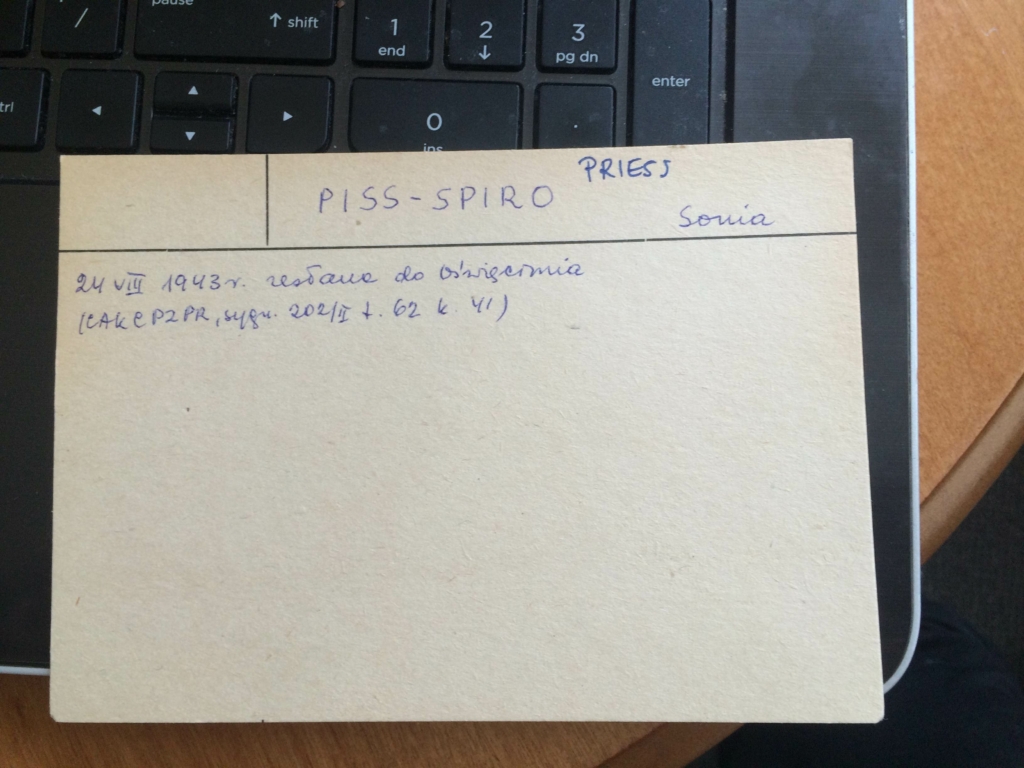 pause
/
↑ shift
1
end
2
↓
3
pg dn
enter
ctrl
◄
▲
▼
►
0
ins
.
PRIESS
PISS-SPIRO
Sonia
24 VIII 1943 r. zesłana do Oświęcimia
(CAKC PZPR, sygn. 202/II t. 62 k. 41)